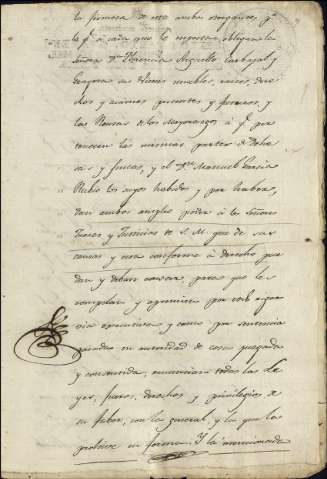 la firmeza de esta ambos otorgantes p.r
lo q.e a cada uno le expresa obligan la
Señora D.a Florencia Arguello Carbajal y
Bergara sus vienes muebles, raices, dere
chos y acciones presentes y futuros, y
las Rentas de los Mayorazgos a q.e per
tenecen las mismas partes de Dehe
sas y fincas, y el D.n Manuel Garcia
Rubio los suyos habidos y por haber,
dan ambos amplio poder a los Señores
Jueces y Justicias de S. M. que de sus
causas y esta conforme a derecho pue
dan y deban conocer, para que les
compelan y apremien por todo rigor
via executiva y como por sentencia
pasada en autoridad de cosa juzgada
y consentida, renunciaron todas las Le
yes, fueros, derechos, y privilegios de
su fabor, con la general, y la que la
prohive en forma. Y la mencionada